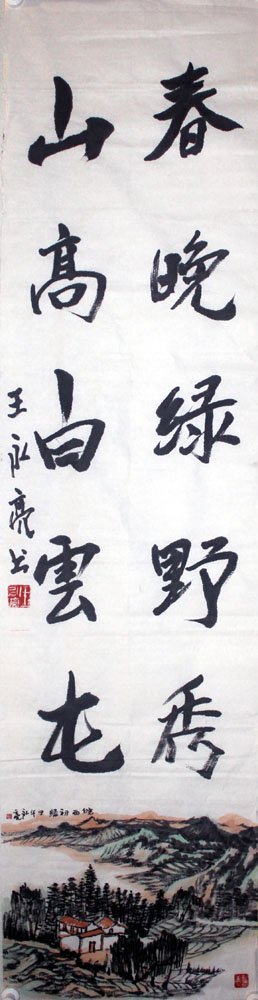 春晚绿野秀
山高白雲屯
王永亮书